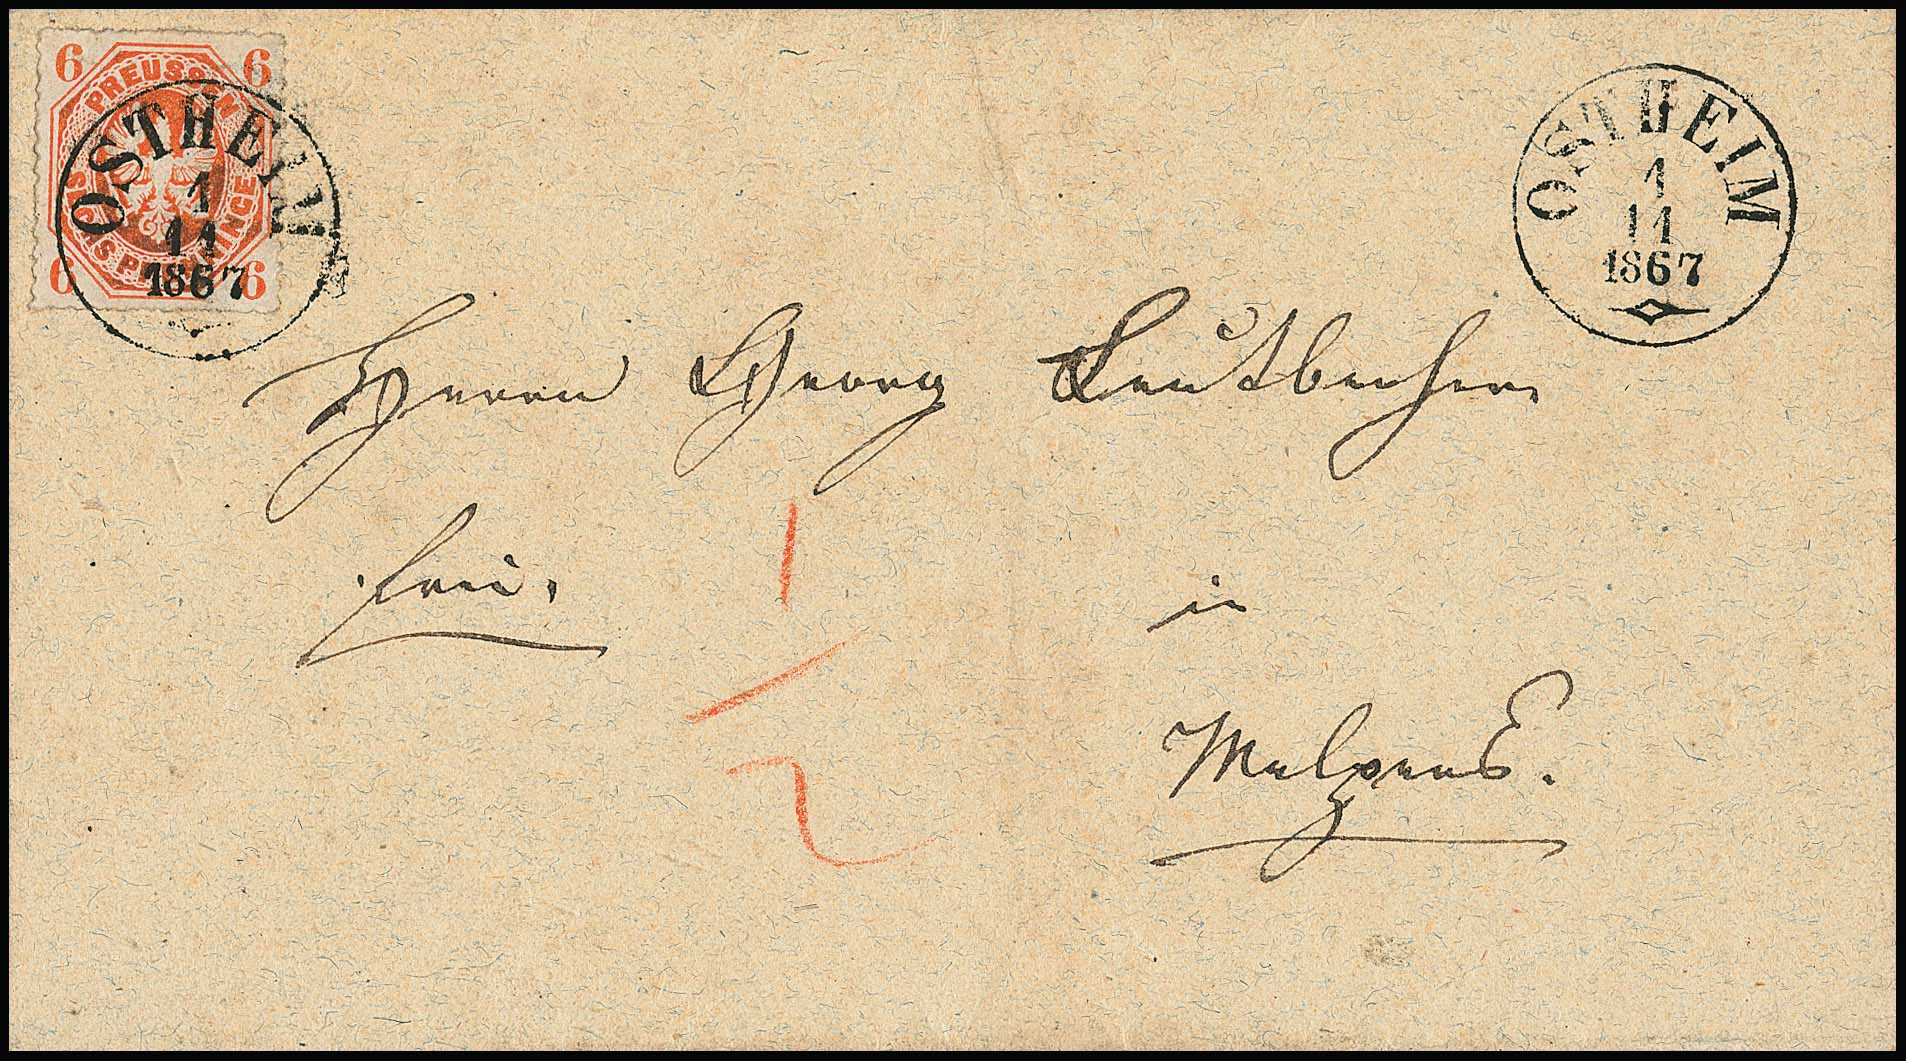 6 6
PREUSSEN
SECHS PFENNINGE
6 6
OSTHEIM
1
11
1867
OSTHEIM
1
11
1867
Herrn Georg Leutbecher
frei.
1
2
in
Melpers.